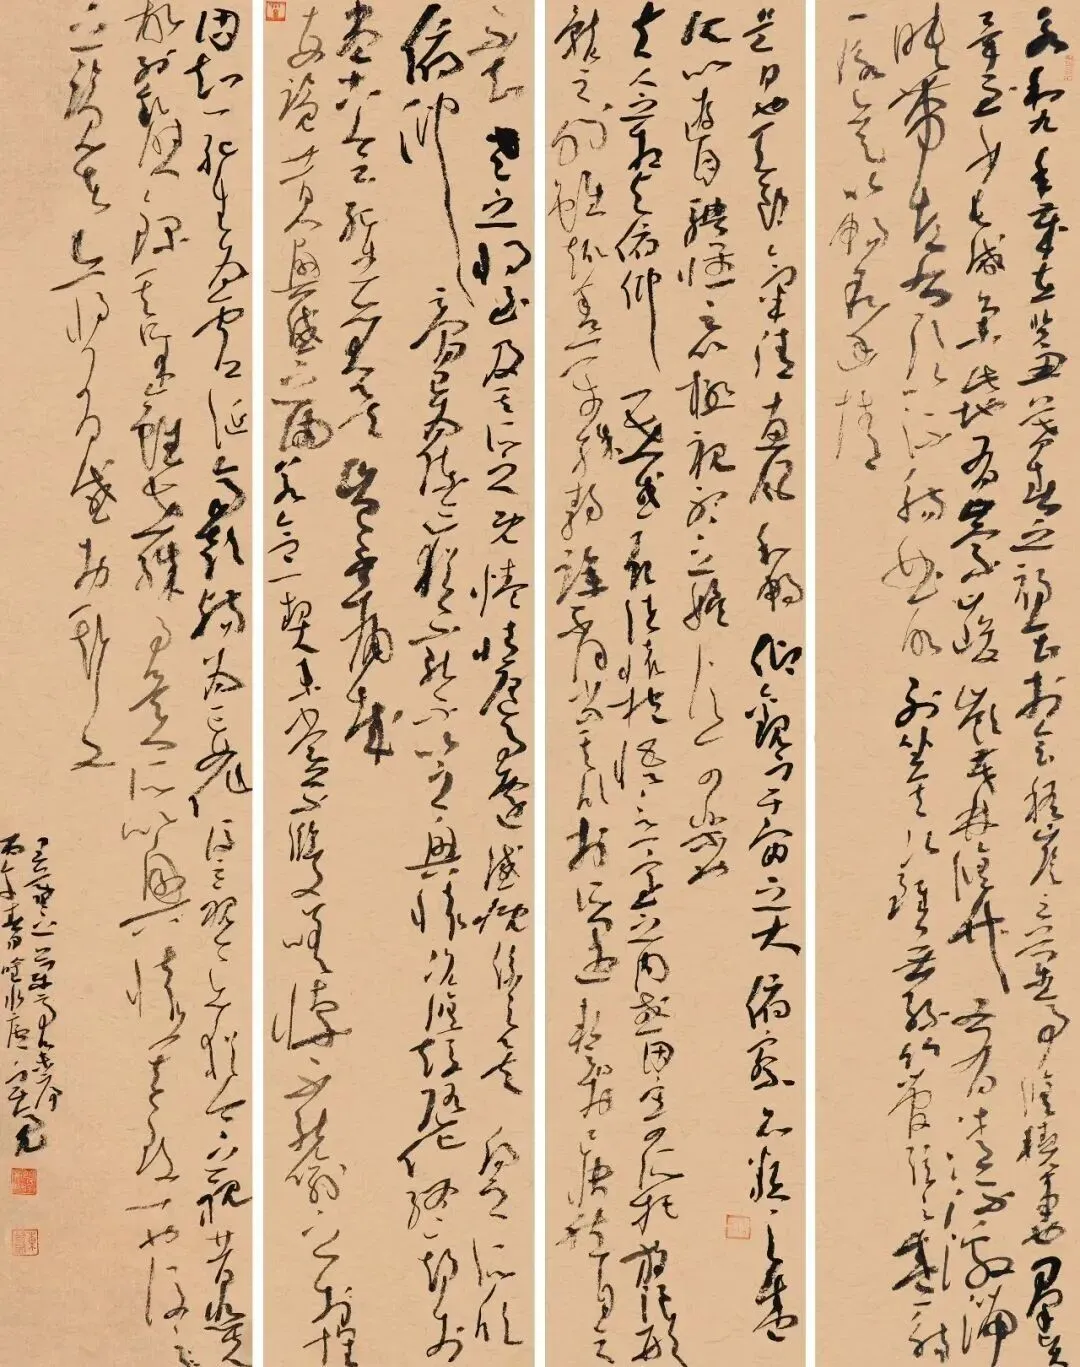 永和九年歲在癸丑暮春之初會於會稽山陰之蘭亭脩禊事也羣賢
畢至少長咸集此地有崇山峻嶺茂林脩竹又有清流激湍
映帶左右引以為流觴曲水列坐其次雖無絲竹管弦之盛一觴
一詠亦足以暢敘幽情
是日也天朗氣清惠風和暢仰觀宇宙之大俯察品類之盛
所以遊目騁懷足以極視聽之娛信可樂也
夫人之相與俯仰一世或取諸懷抱悟言一室之內或因寄所託放浪形
骸之外雖趣舍萬殊靜躁不同當其欣於所遇暫得於己快然自足
不知老之將至及其所之既惓情隨事遷感慨係之矣向之所欣
俯仰之間已為陳迹猶不能不以之興懷況脩短隨化終期於
盡古人云死生亦大矣豈不痛哉
每覽昔人興感之由若合一契未嘗不臨文嗟悼不能喻之於懷
固知一死生為虛誕齊彭殤為妄作後之視今亦猶今之視昔悲夫
故列敘時人錄其所述雖世殊事異所以興懷其致一也後之
覽者亦將有感於斯文
丙午春日